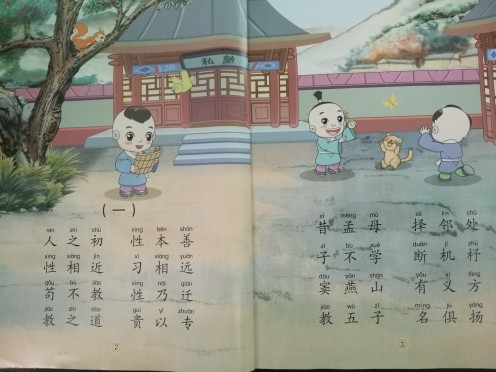 私塾
(一)
rén zhī chū xìng běn shàn
人之初 性本善
xìng xiāng jìn xí xiāng yuǎn
性相近 习相远
gǒu bú jiào xìng nǎi qiān
苟不教 性乃迁
jiào zhī dào guì yǐ zhuān
教之道 贵以专
2
xī mèng mǔ zé lín chǔ
昔孟母 择邻处
zǐ bù xué duàn jī zhù
子不学 断机杼
dòu yān shān yǒu yì fāng
窦燕山 有义方
jiào wǔ zǐ míng jù yáng
教五子 名俱扬
3